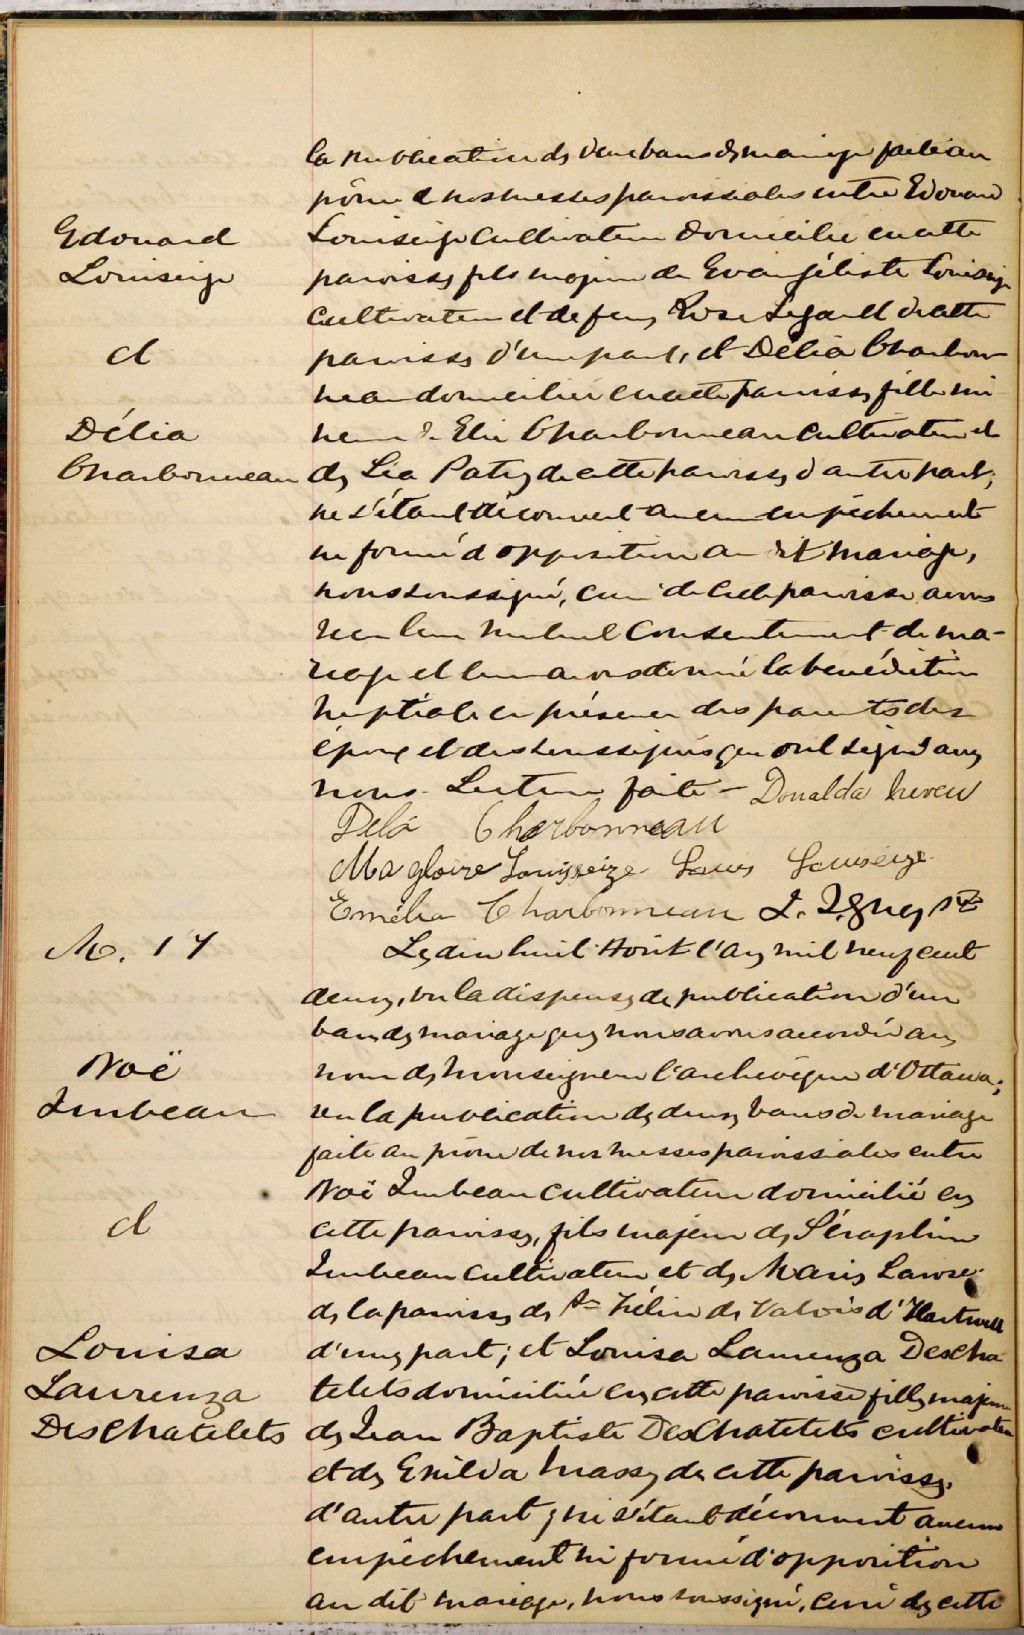 la publication de deux bans de mariage faite au
prône de nos messes paroissiales entre Edouard
Edouard
Louiseige
Louiseige cultivateur domicilié en cette
paroisse, fils majeur de Evangéliste Louiseige
cultivateur et de feue Rose Legault de cette
et
paroisse d'une part, et Délia Charbon-
neau domiciliée en cette paroisse, fille mi-
Délia
Charbonneau
neure de Elie Charbonneau cultivateur et
de Léa Patry de cette paroisse d'autre part;
ne s'étant découvert aucun empêchement
ni formé d'opposition au dit mariage,
nous soussigné, curé de cette paroisse avons
reçu leur mutuel consentement de ma-
riage et leur avons donné la bénédiction
nuptiale en présence des parents des
époux et des soussignés qui ont signé avec
nous. Lecture faite - Donalda
Déla Charbonneau
Magloire Louisseize Louis Louiseize
Emélia Charbonneau
M. 17
Le dix huit Août l'an mil neuf cent
deux, vu la dispense de publication d'un
ban de mariage que nous avons accordée au
Noë
Imbeau
nom de Monseigneur l'archevêque d'Ottawa;
vu la publication de deux bans de mariage
faite au prône de nos messes paroissiales entre
Noë Imbeau cultivateur domicilié en
et
cette paroisse, fils majeur de Séraphin
Imbeau cultivateur et de Marie Larose
de la paroisse de St Félix de Valois d'Hartwell
Louisa
Laurenza
DesChatelets
d'une part; et Louisa Laurenza DesCha
telets domiciliée en cette paroisse fille majeure
de Jean Baptiste DesChatelets cultivateur
et de Exilda Massy de cette paroisse,
d'autre part; ne s'étant découvert aucun
empêchement ni formé d'opposition
au dit mariage, nous soussigné, curé de cette